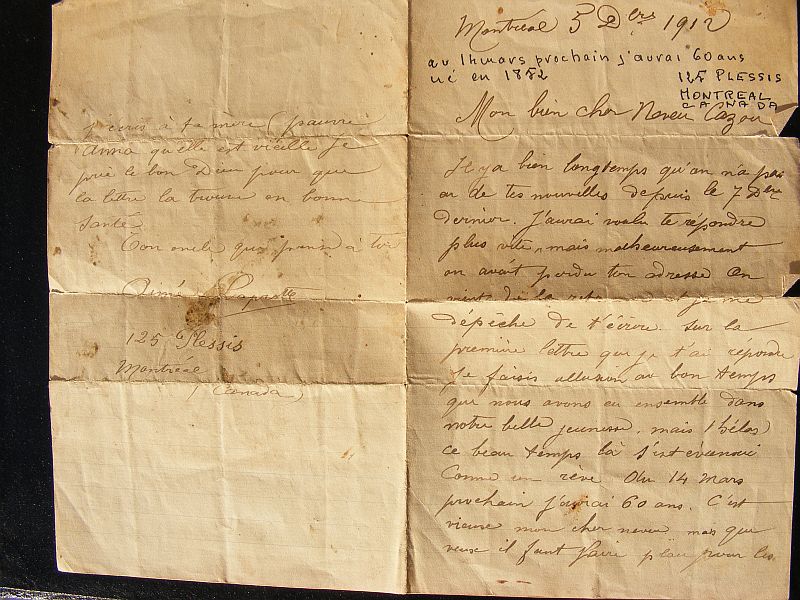 Montréal 5 Dbre 1912
au 14 mars prochain j'aurai 60 ans
né en 1852
125 PLESSIS
MONTREAL
CANADA
Mon bien cher Neveu Cazou
Il y a bien longtemps qu'on n'a pas
de tes nouvelles depuis le 7 Dbre
dernier. J'aurai voulu te répondre
plus vite, mais malheureusement
on avait perdu ton adresse on
vient de la et je me
dépêche de t'écrire. Sur la
première lettre que je t'ai répondu
Je faisis allusion au bon temps
que nous avons eu ensemble dans
notre belle jeunesse, mais ! hélas)
ce beau temps là s'est évanoui
Comme un rêve Au 14 Mars
prochain j'aurai 60 ans. C'est
vieux mon cher neveu mas que
veuse il faut faire plau pour les
J'écris à ta mère (pauvre
Anna qu'elle est vieille je
prie le bon Dieu pour que
la lettre la trouve en bonne
santé
Ton oncle que pense à toi
Aimé Laporte
125 Plessis
Montréal
(Canada)